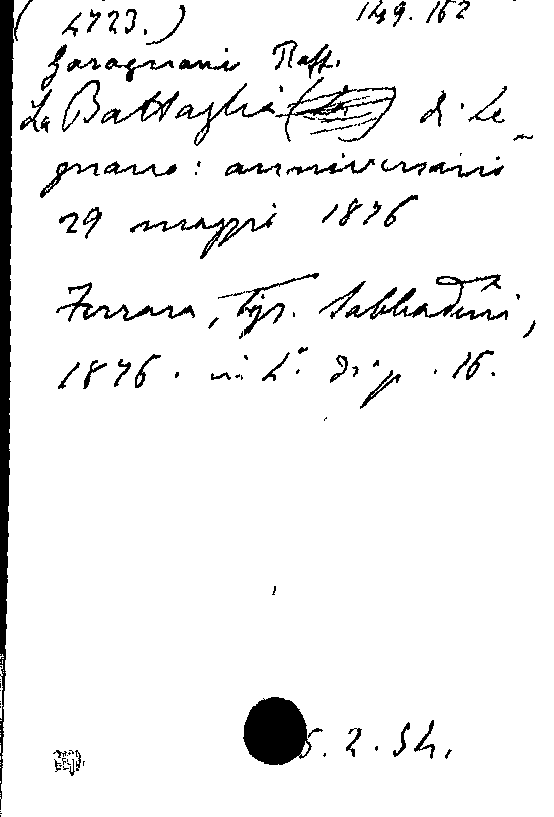 (4723.) 149.162
Garagnani Raff.
La Battaglia di Le-
gnano: anniversario
29 maggio 1876
Ferrara, Tip. Sabbadini,
1876. in 4.° di p. 16.
6.2.54.